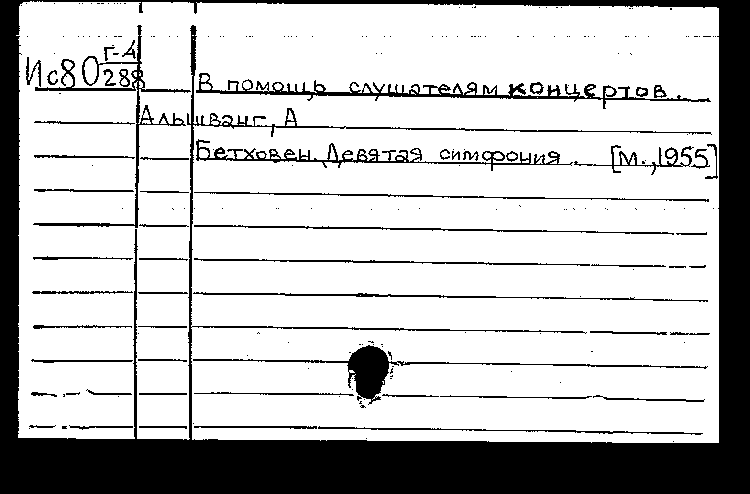 Г-4
Ис80 288 В помощь слушателям концертов.
Альшванг, А
Бетховен. Девятая симфония. [М., 1955]